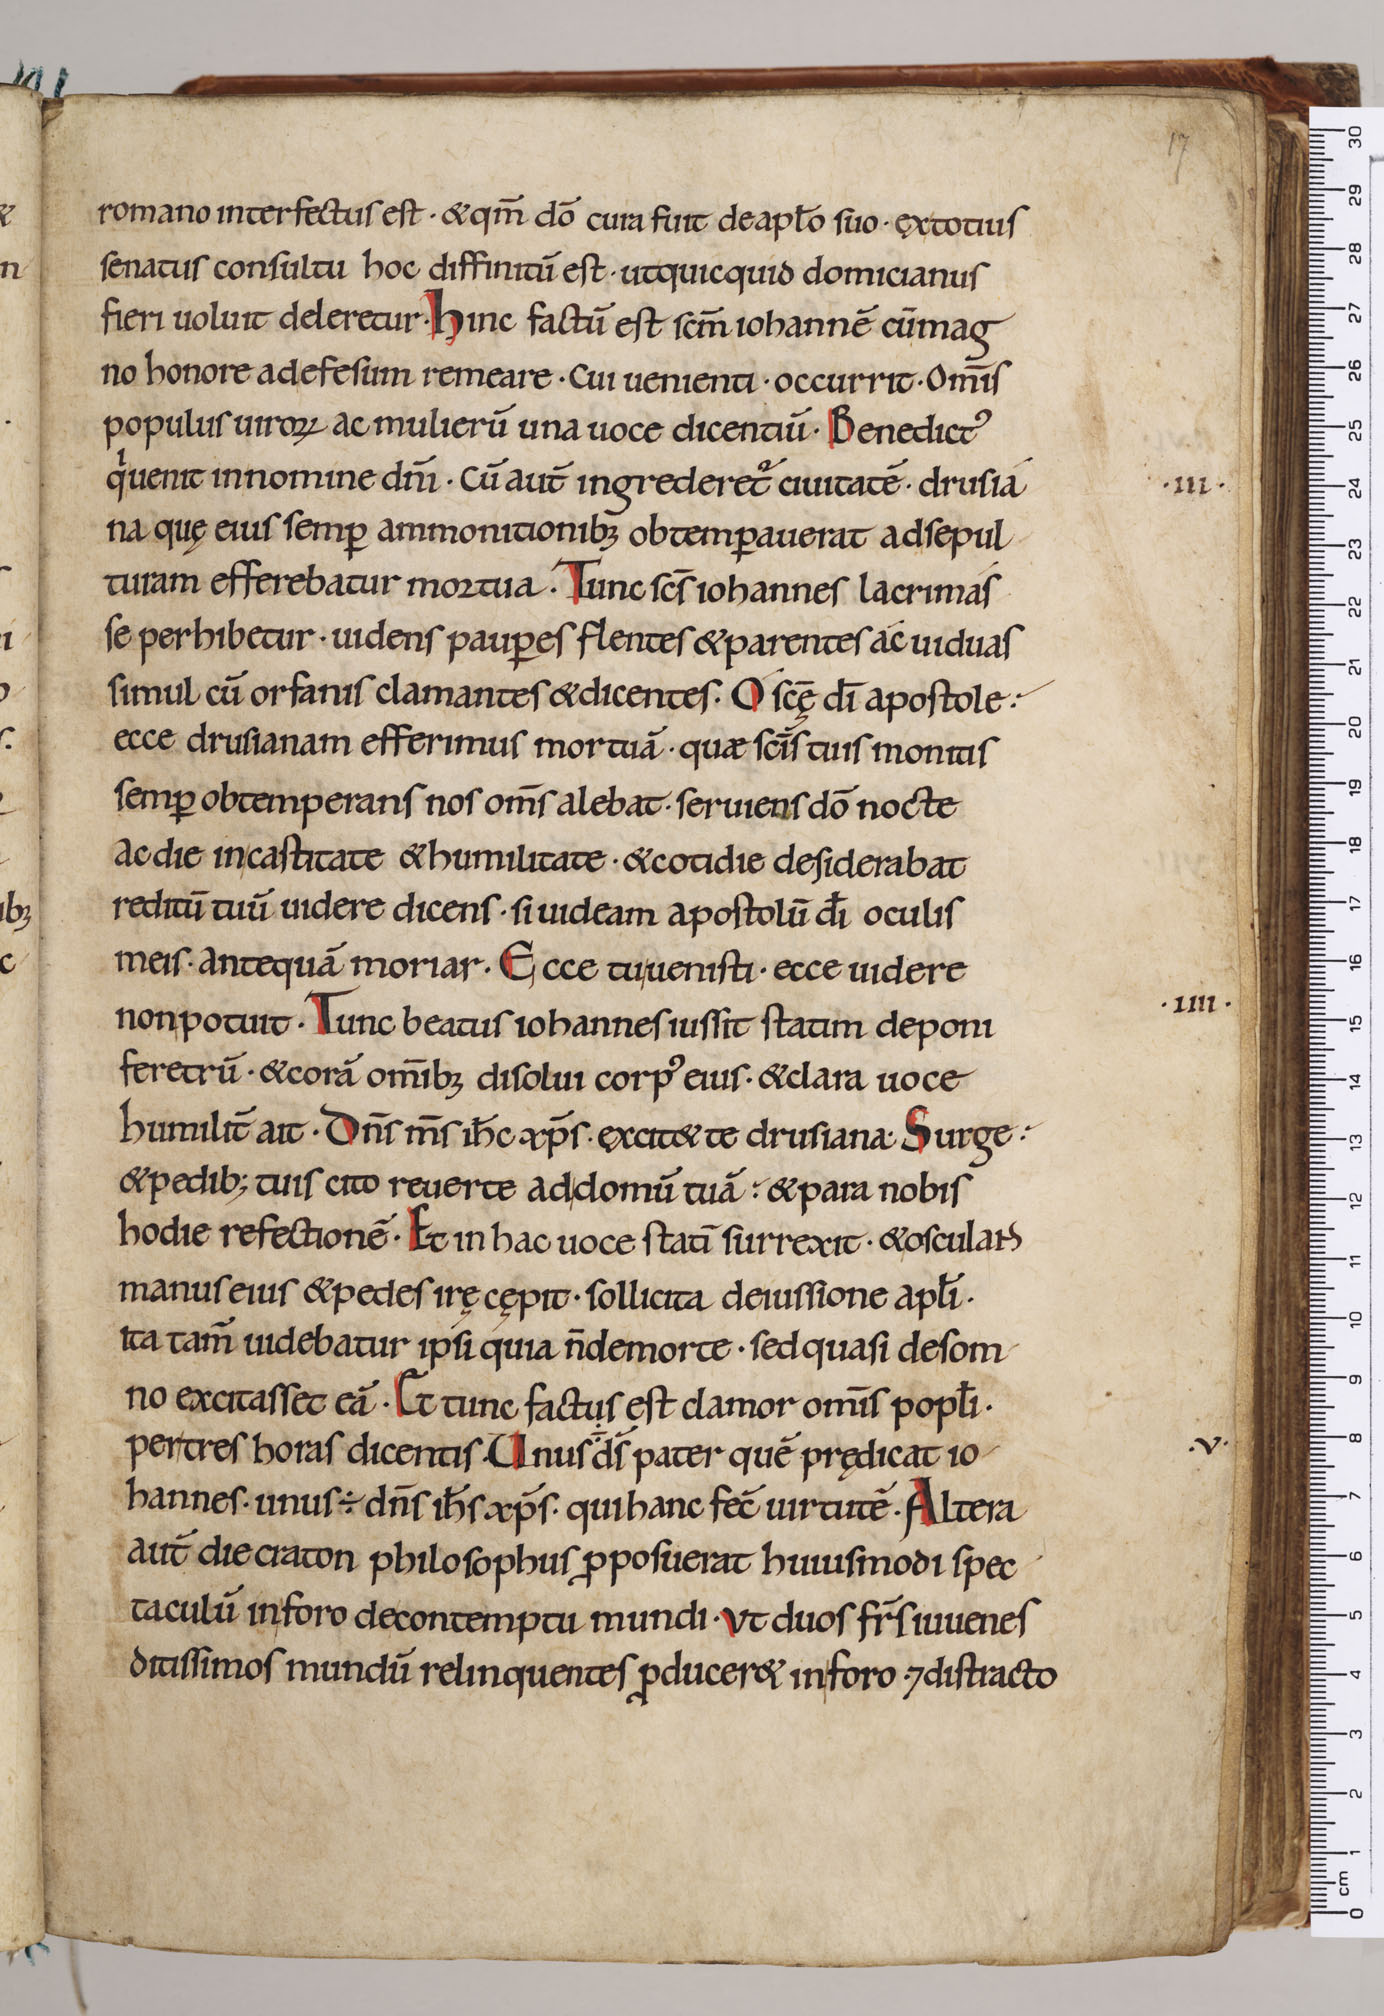 17
romano interfectus est · &qm̄ dō cura fuit deapl̄o suo · extotius
senatus consultu hoc diffinitū est · utquicquid domicianus
fieri uoluit deleretur · Hinc factū est scm̄ iohannē cūmag
no honore adefesum remeare · Cui uenienti · occurrit · Om̄is
populus uiroꝝ ac mulierū una uoce dicentiū · Benedictꝰ
q̇uenit innomine dn̄i · Cū aut̄ ingrederet᷑ ciuitatē · drusia
·III·
na quę eius semꝑ ammonitionibꝫ obtemꝑauerat adsepul
turam efferebatur mortua · Tunc sc̄s iohannes lacrimas
se perhibetur · uidens pauꝑes flentes &parentes ac uiduas
simul cū orfanis clamantes &dicentes · O sc̄ę dī apostole :
ecce drusianam efferimus mortuā · quæ sc̄is tuis monitis
semꝑ obtemperans nos om̄s alebat · seruiens dō nocte
ac die incastitate &humilitate · &cotidie desiderabat
reditū tuū uidere dicens · si uideam apostolū dī oculis
meis · antequā moriar · Ecce tuuenisti · ecce uidere
nonpotuit · Tunc beatus iohannes iussit statim deponi
·IIII·
feretrū · &corā om̄ibꝫ disolui corpꝰ eius · &clara uoce
humilit̄ ait · Dn̄s m̄s ih̄c xp̄s · excit& te drusiana · Surge :
&pedib; tuis cito reuerte addomū tuā : &para nobis
hodie refectionē · Et in hac uoce statī surrexit · &osculans
manus eius &pedes irę cępit · sollicita deiussione apl̄i ·
ita tam̄ uidebatur ipsi quia n̄demorte · sedquasi desom
no excitasset eā · Et tunc factus est clamor om̄is popl̄i ·
pertres horas dicentis · Unus÷ d̄s pater quē prędicat io
·V·
hannes · unus÷ dn̄s ih̄s xp̄s · quihanc fec̄ uirtutē · Altera
aut̄ die craton philosophus ꝓposuerat huiusmodi spec
taculū inforo decontemptu mundi · Vt duos fr̄s iuuenes
ditissimos mundū relinquentes ꝓducer& inforo · ⁊distracto